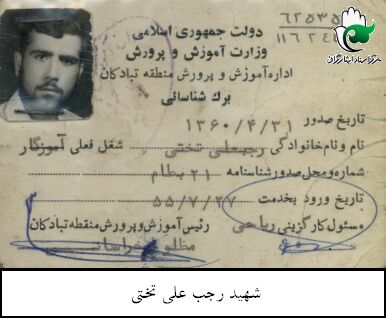 دولت جمهوری اسلامی
وزارت آموزش و پرورش
اداره آموزش و پرورش منطقه تبادکان
برگ شناسائی
تاریخ صدور ۱۳۶۰/۴/۳۱
نام و نام خانوادگی رجبعلی تختی شغل فعلی آموزگار
شماره و محل صدور شناسنامه ۲۱ بطام
تاریخ ورود بخدمت ۵۵/۷/۲۷
مسئول کارگزینی ریاحی رئیس آموزش و پرورش منطقه تبادکان
مظلوم خراسانی
شهید رجب علی تختی